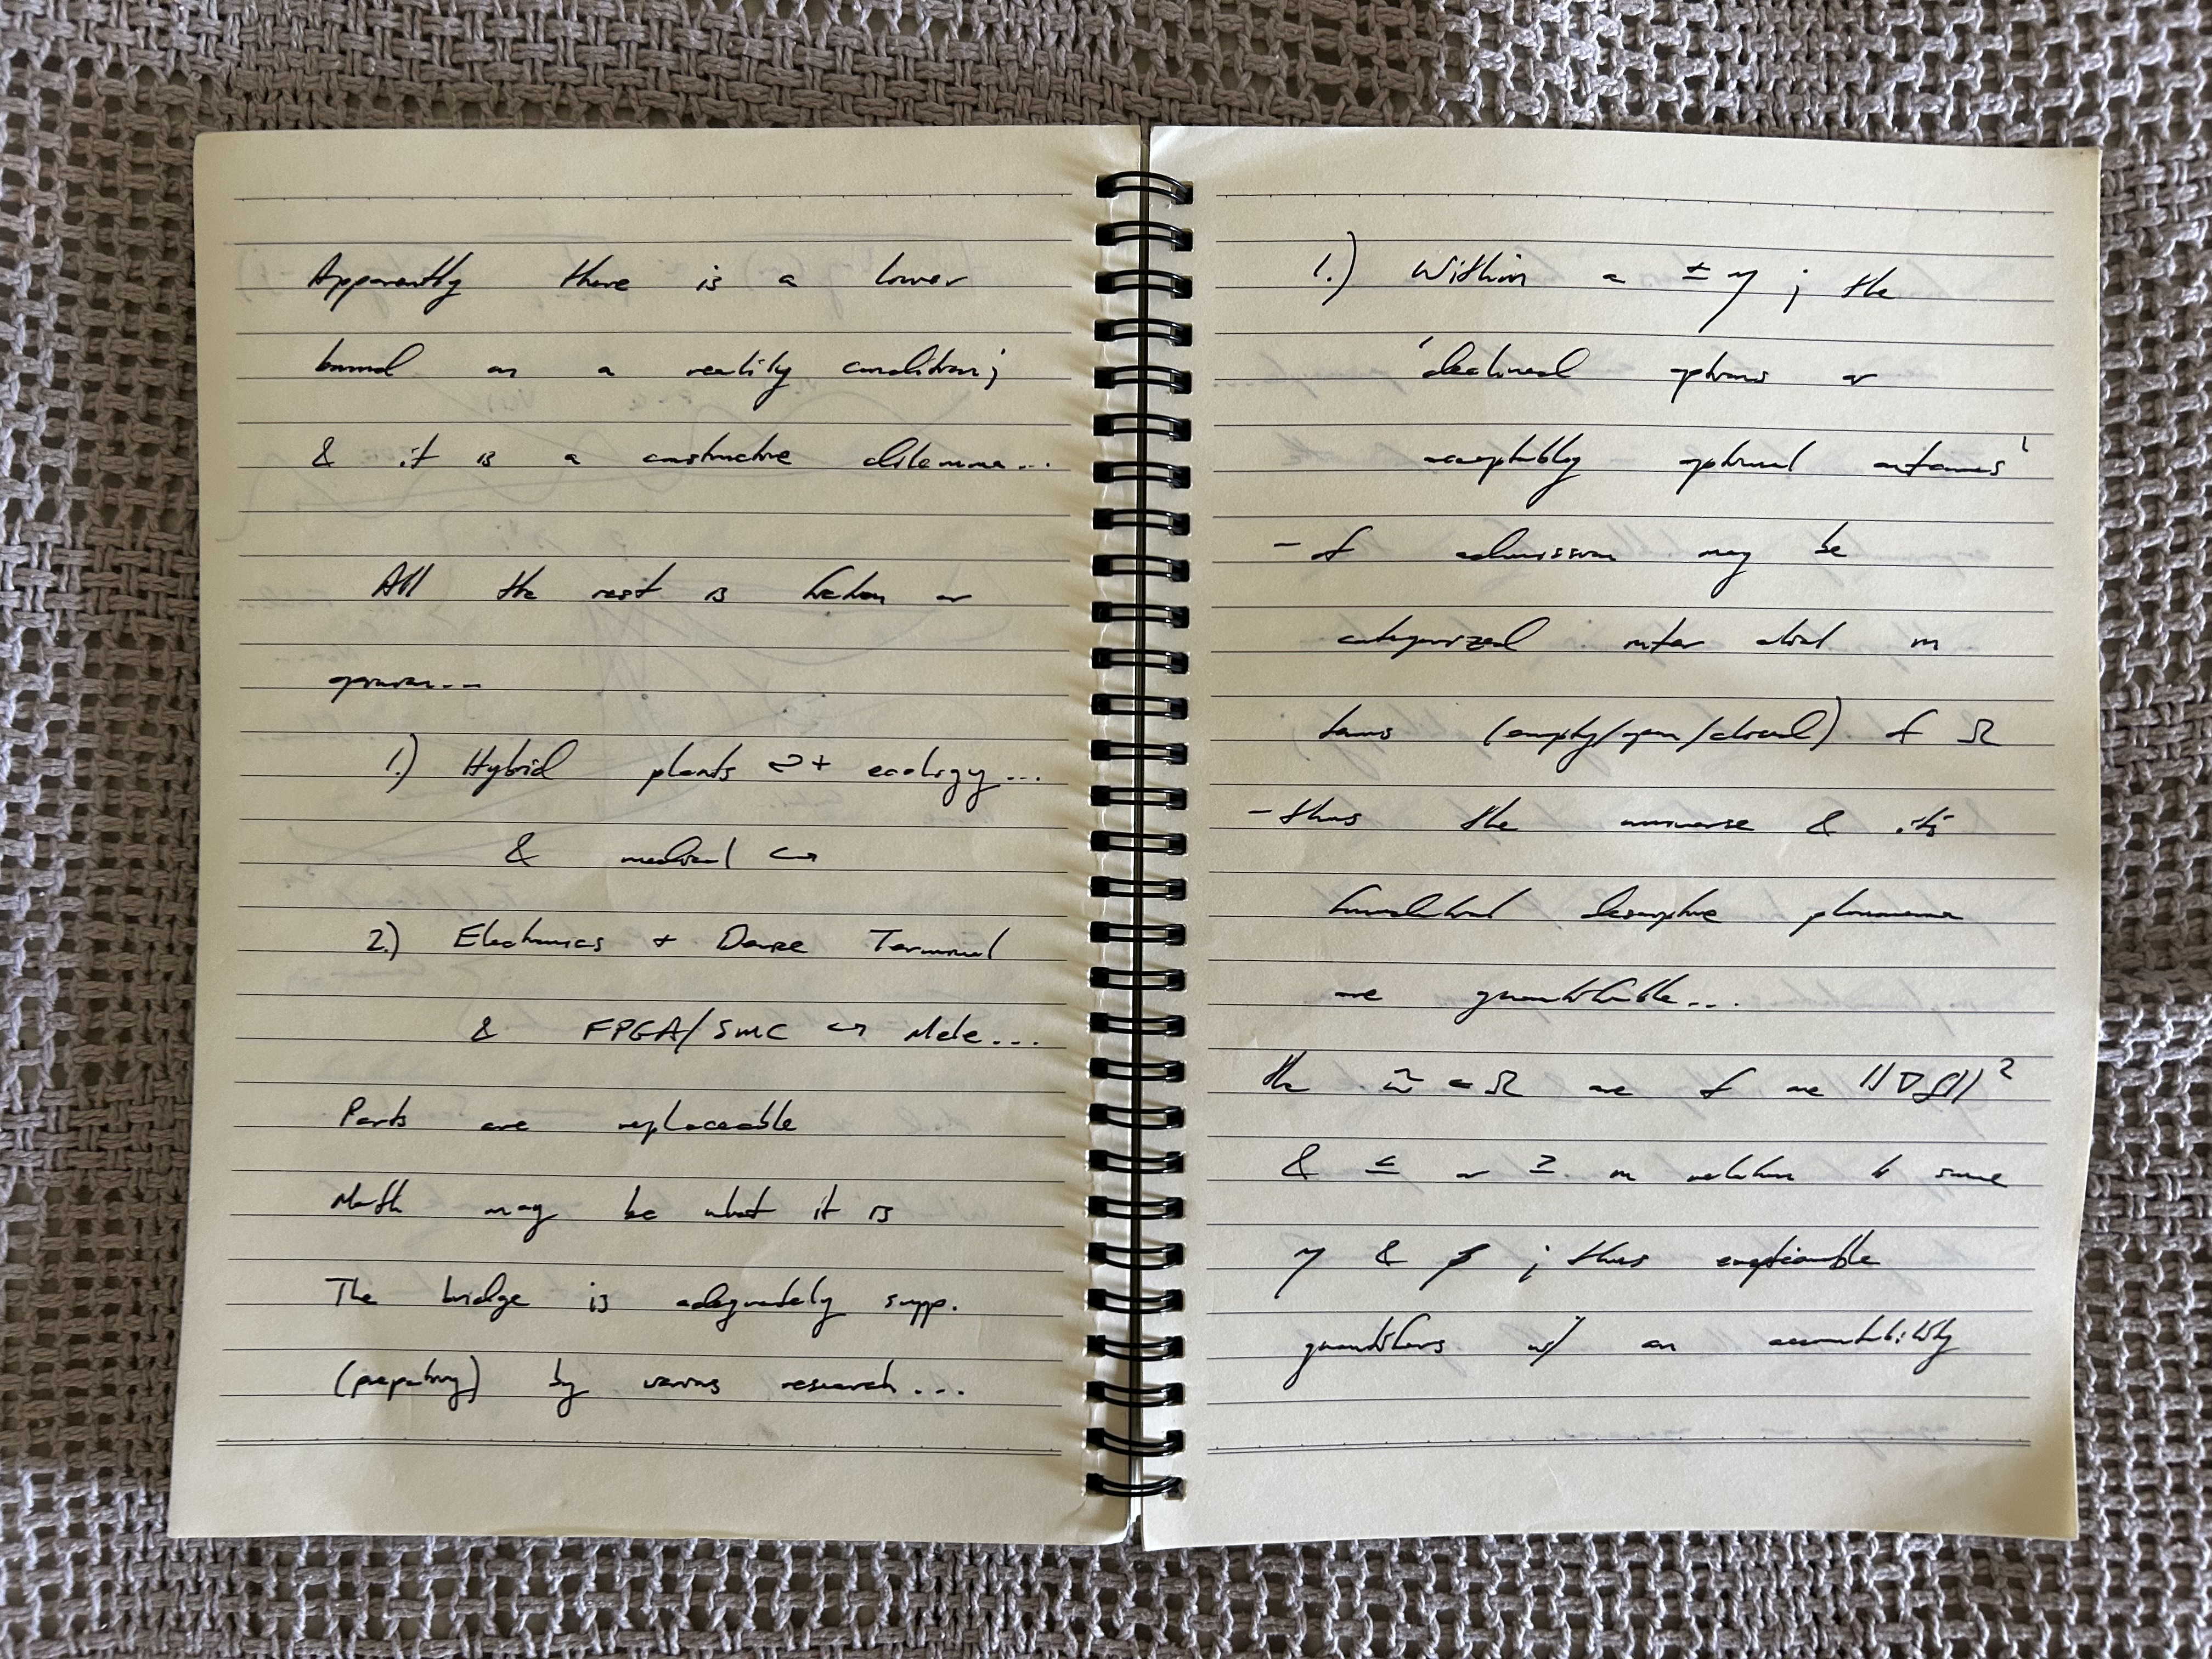 Apparently there is a lower
bound on a reality condition;
& it is a constructive dilemma...
All the rest is fiction or
opinion...
1.) Hybrid plants ⇄ + ecology...
& medical ↪
2.) Electronics + Terminal
& FPGA/SMC ↪ Mele...
Parts are replaceable
Math may be what it is
The bridge is adequately supp.
(prepatory) by various research...
1.) Within a ± η ; the
'declined options or
acceptably optimal outcomes'
- of admission may be
categorized inter alia in
terms (empty/open/closed) of Ω
- thus the universe & its
descriptive phenomena
are quantifiable...
the Ω are of are ||∇f||²
& ≤ or ≥ in relation to some
η & ; thus exceptionable
quantifiers w/ an accountability